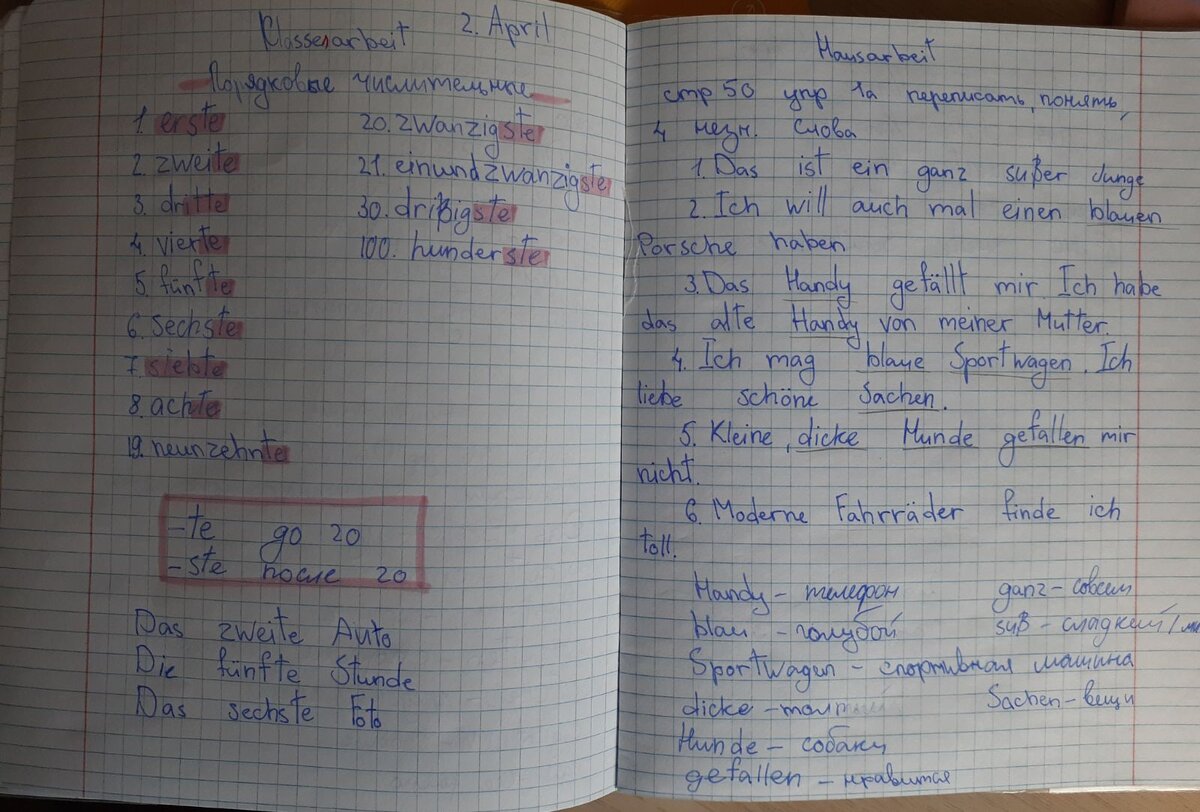 Klassenarbeit 2. April
Порядковые числительные
1. erste
2. zweite
3. dritte
4. vierte
5. fünfte
6. sechste
7. siebte
8. achte
19. neunzehnte
20. zwanzigste
21. einundzwanzigste
30. drißigste
100. hunderste
-te до 20
-ste после 20
Das zweite Auto
Die fünfte Stunde
Das sechste Foto
Hausarbeit
стр 50 упр 1а переписать, понять,
4 незн. слова
1. Das ist ein ganz sußer Junge
2. Ich will auch mal einen blauen
Porsche haben
3. Das Handy gefällt mir. Ich habe
das alte Handy von meiner Mutter.
4. Ich mag blaue Sportwagen. Ich
liebe schöne Sachen.
5. Kleine, dicke Hunde gefallen mir
nicht.
6. Moderne Fahrräder finde ich
toll.
Handy - телефон ganz - совсем
blau - голубой suß - сладкий/
Sportwagen - спортивная машина
dicke - Sachen - вещи
Hunde - собаки
gefallen - нравится